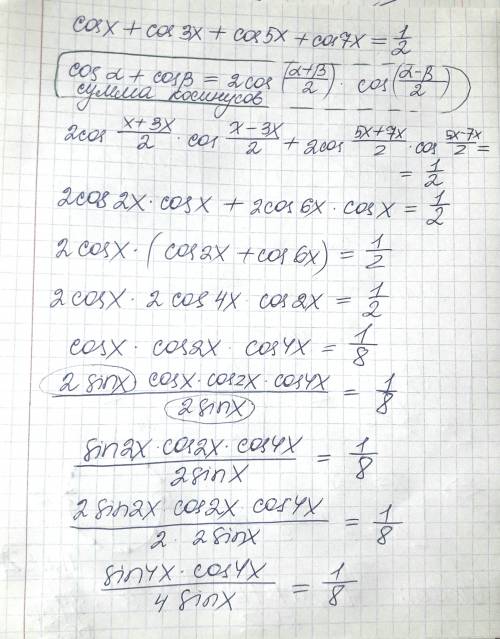 cos x + cos 3x + cos 5x + cos 7x = 1/2
cos α + cos β = 2cos ((α+β)/2) · cos ((α-β)/2)
сумма косинусов
2cos (x+3x)/2 · cos (x-3x)/2 + 2cos (5x+7x)/2 · cos (5x-7x)/2 =
= 1/2
2cos 2x · cos x + 2cos 6x · cos x = 1/2
2cos x · (cos 2x + cos 6x) = 1/2
2cos x · 2cos 4x · cos 2x = 1/2
cos x · cos 2x · cos 4x = 1/8
(2 sin x · cos x · cos 2x · cos 4x)/(2 sin x) = 1/8
(sin 2x · cos 2x · cos 4x)/(2 sin x) = 1/8
(2 sin 2x · cos 2x · cos 4x)/(2 · 2 sin x) = 1/8
(sin 4x · cos 4x)/(4 sin x) = 1/8